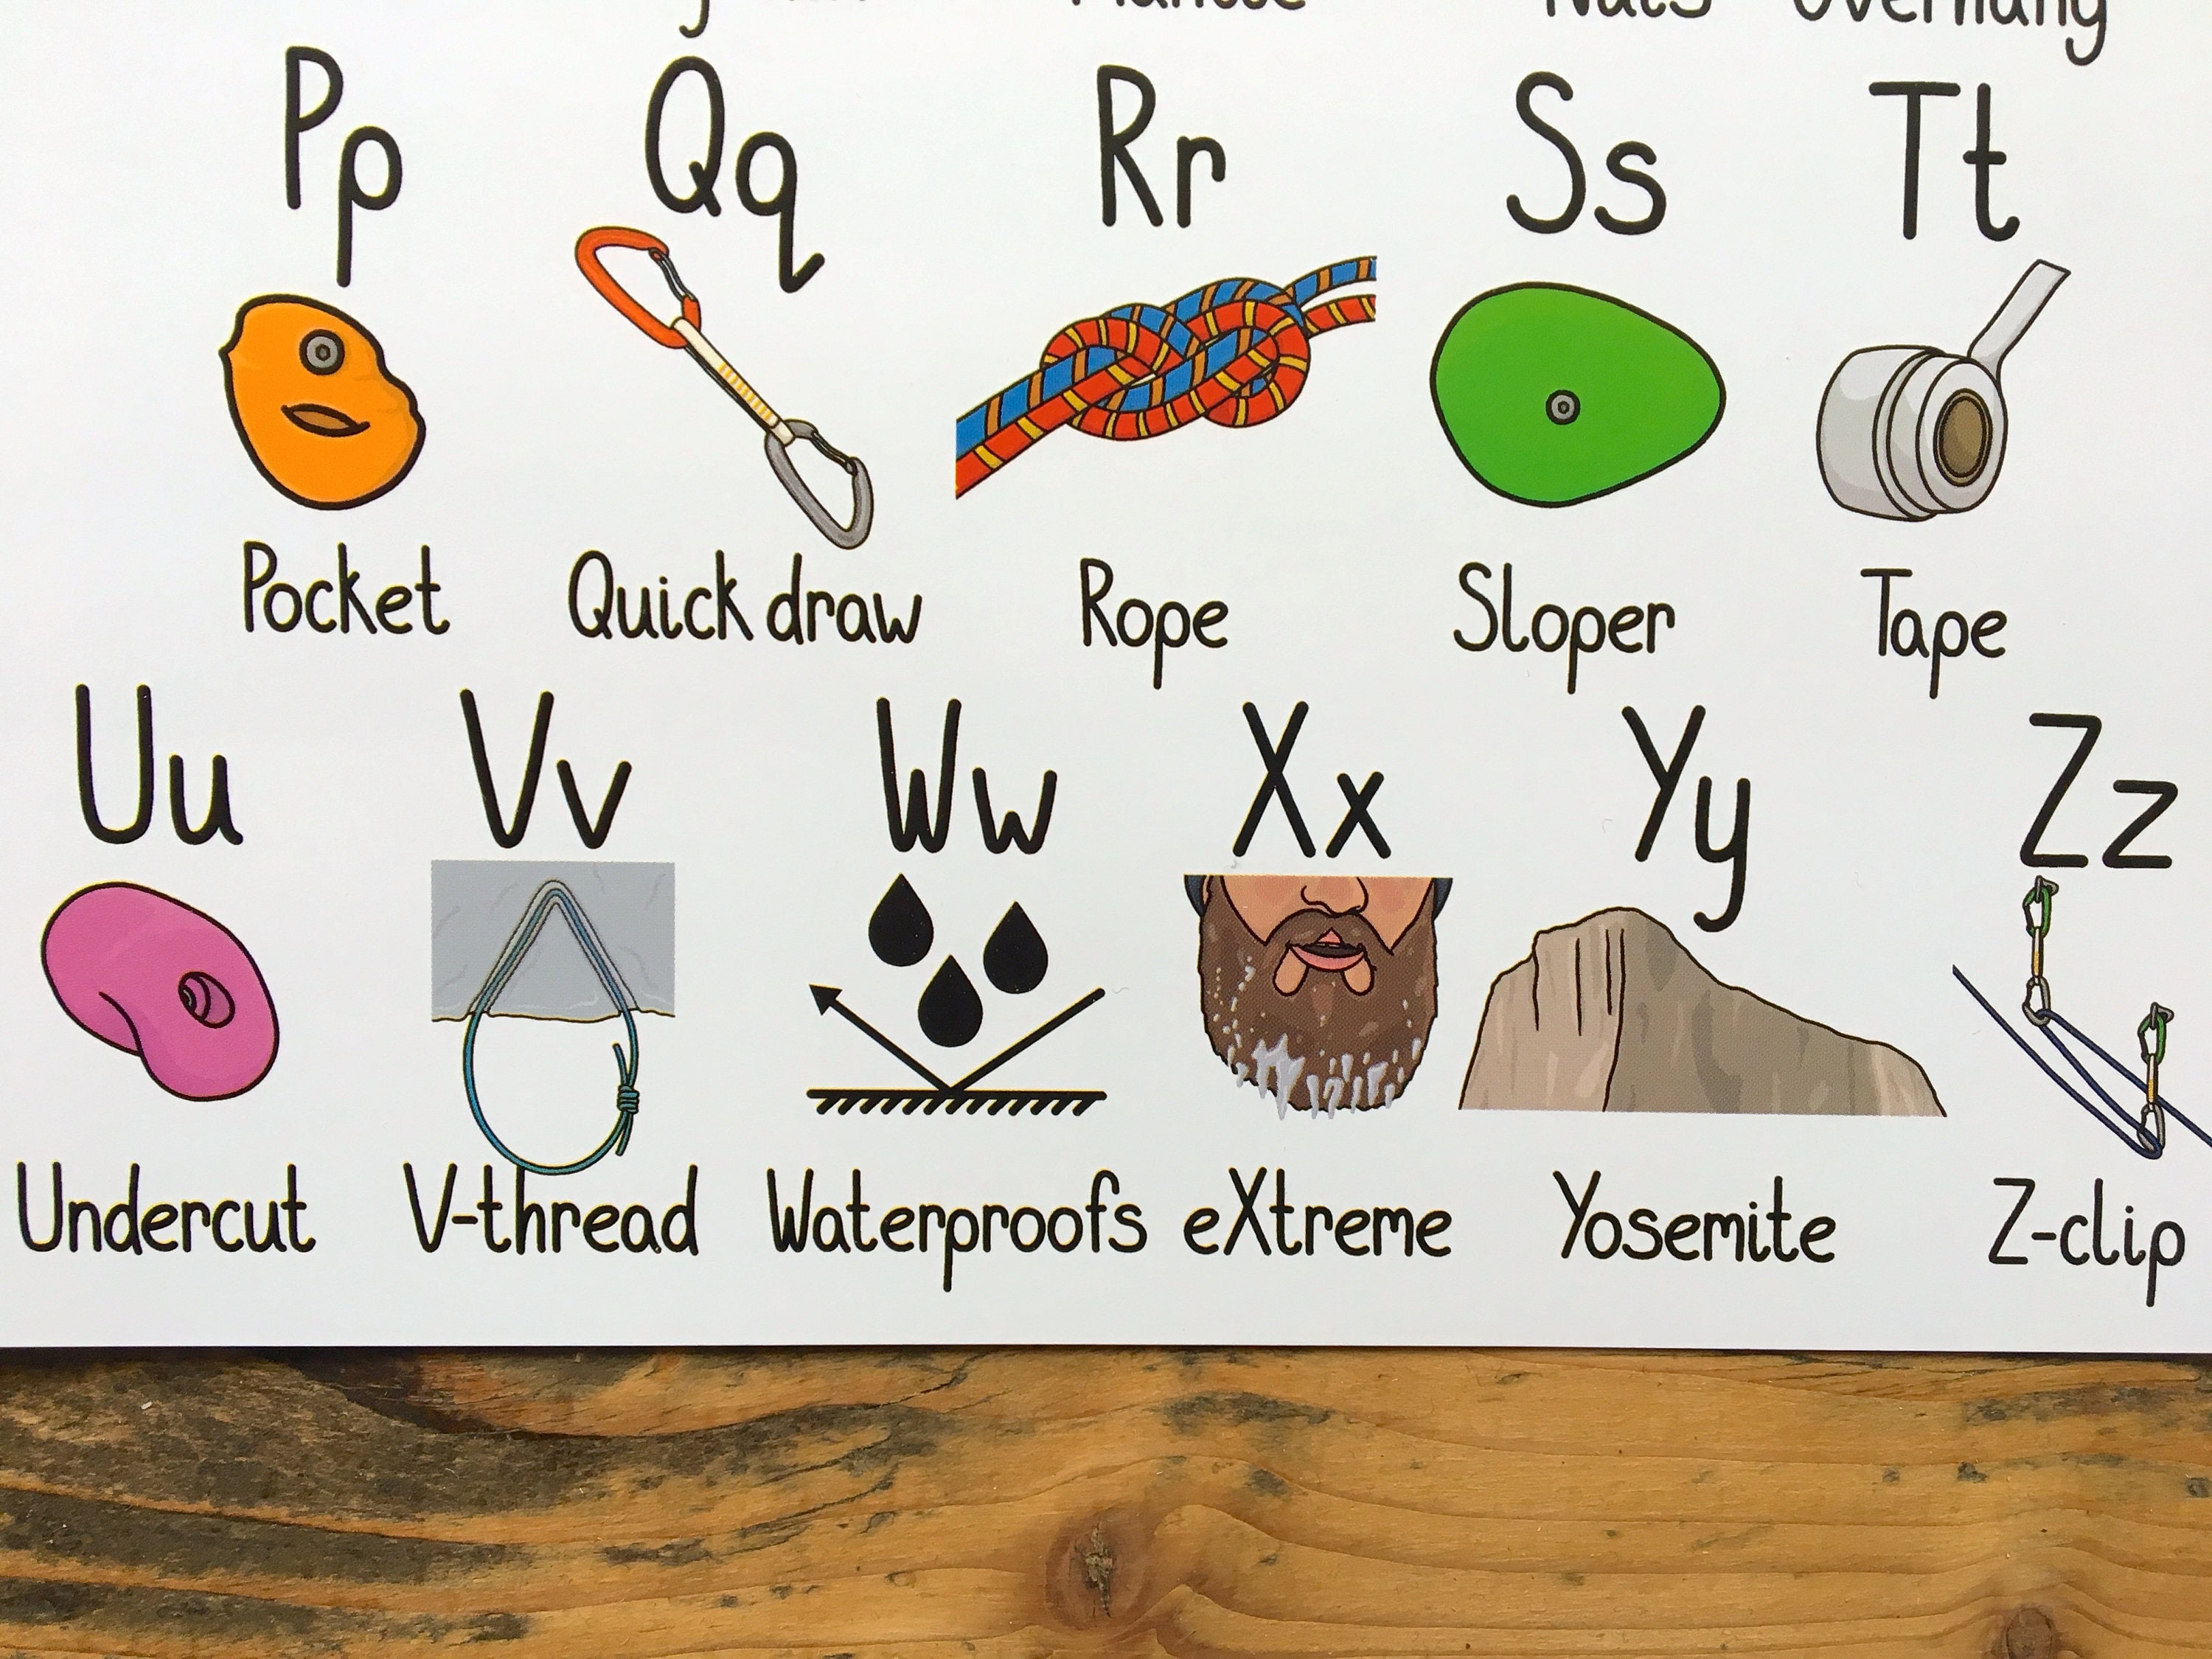 Nuts Overhang
Pp Qq Rr Ss Tt
Pocket Quickdraw Rope Sloper Tape
Uu Vv Ww Xx Yy Zz
Undercut V-thread Waterproofs eXtreme Yosemite Z-clip